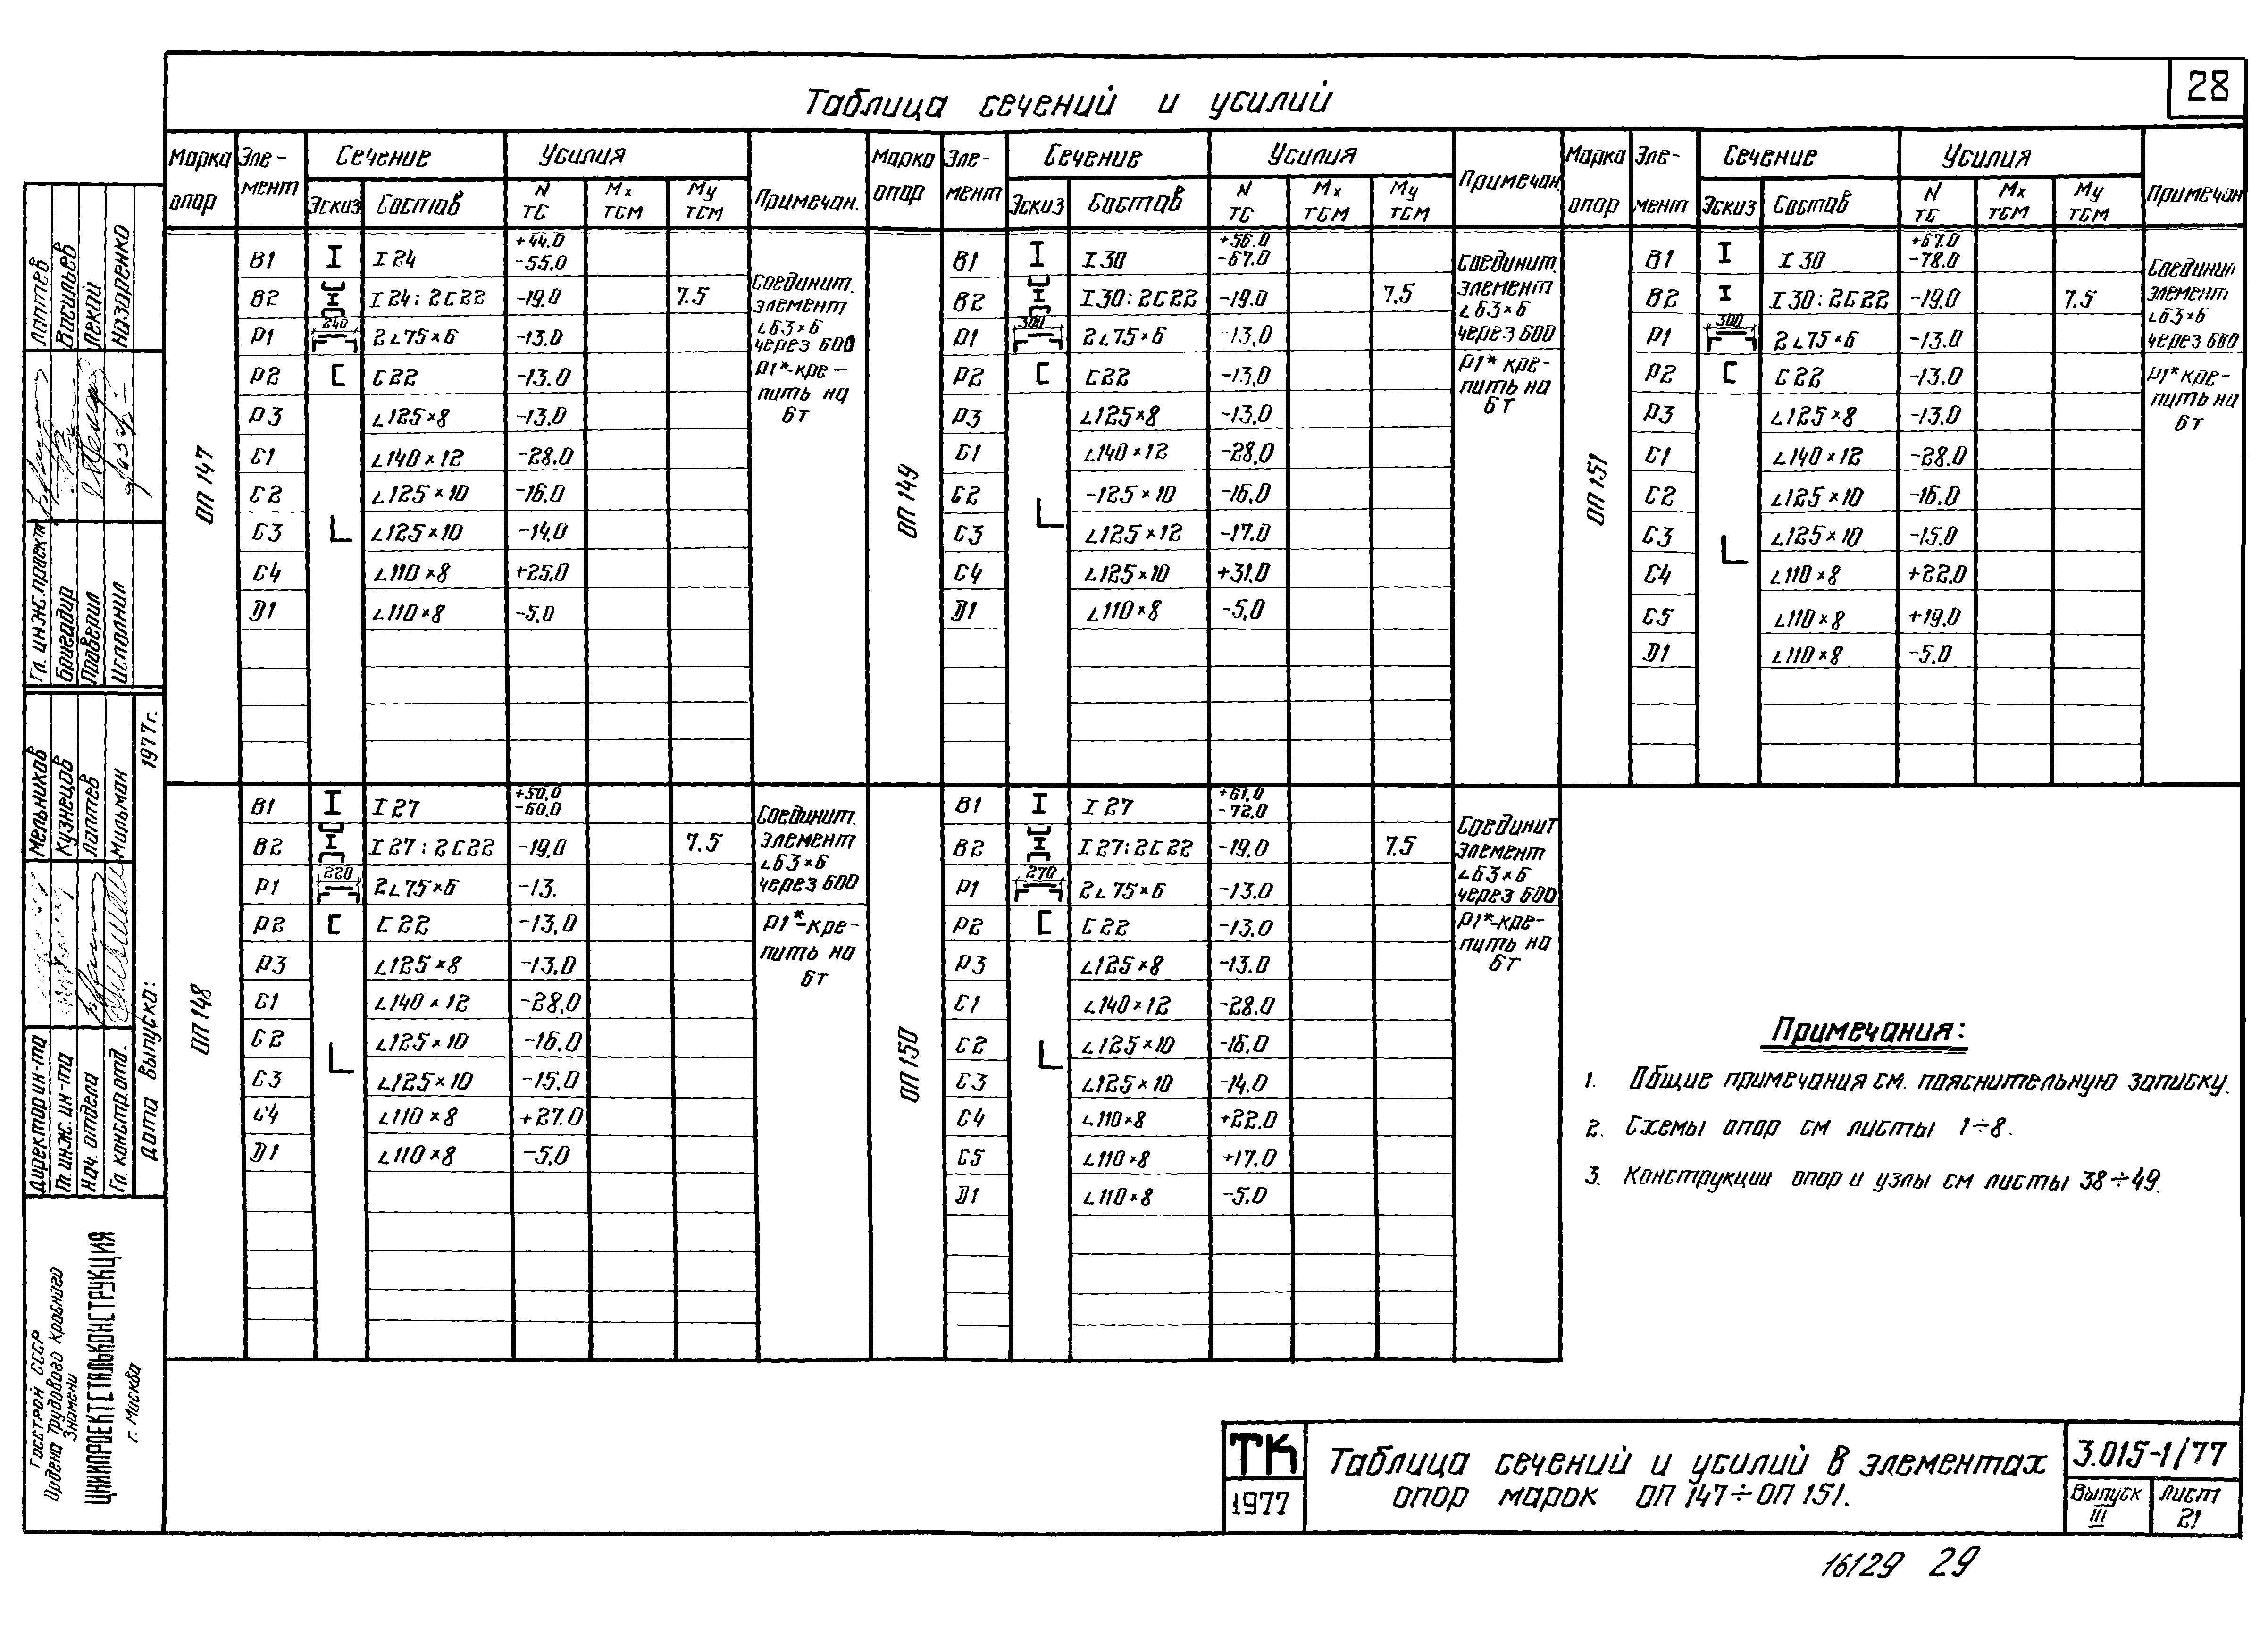 28
Таблица сечений и усилий
Марка опор Эле-мент Сечение Усилия Примечан.
Эскиз Состав N тс Mx тсм My тсм
ОП 147
В1 I24 +44.0 -55.0
В2 I24; 2С22 -19.0 7.5
Р1 240 2∟75×6 -13.0
Р2 С22 -13.0
Р3 ∟125×8 -13.0
С1 ∟140×12 -28.0
С2 ∟125×10 -16.0
С3 ∟125×10 -14.0
С4 ∟110×8 +25.0
D1 ∟110×8 -5.0
Соединит.
элемент
∟63×6
через 600
Р1*-кре-
пить на
6т
ОП 148
В1 I27 +50.0 -60.0
В2 I27; 2С22 -19.0 7.5
Р1 220 2∟75×6 -13.
Р2 С22 -13.0
Р3 ∟125×8 -13.0
С1 ∟140×12 -28.0
С2 ∟125×10 -16.0
С3 ∟125×10 -15.0
С4 ∟110×8 +27.0
D1 ∟110×8 -5.0
Соединит.
элемент
∟63×6
через 600
Р1*-кре-
пить на
6т
Марка опор Эле-мент Сечение Усилия Примечан.
Эскиз Состав N тс Mx тсм My тсм
ОП 149
В1 I30 +56.0 -67.0
В2 I30; 2С22 -19.0 7.5
Р1 300 2∟75×6 -13.0
Р2 С22 -13.0
Р3 ∟125×8 -13.0
С1 ∟140×12 -28.0
С2 -125×10 -16.0
С3 ∟125×12 -17.0
С4 ∟125×10 +31.0
D1 ∟110×8 -5.0
Соединит.
элемент
∟63×6
через 600
Р1* кре-
пить на
6т
ОП 150
В1 I27 +61.0 -72.0
В2 I27; 2С22 -19.0 7.5
Р1 270 2∟75×6 -13.0
Р2 С22 -13.0
Р3 ∟125×8 -13.0
С1 ∟140×12 -28.0
С2 ∟125×10 -16.0
С3 ∟125×10 -14.0
С4 ∟110×8 +22.0
С5 ∟110×8 +17.0
D1 ∟110×8 -5.0
Соединит
элемент
∟63×6
через 600
Р1*-кре-
пить на
6т
Марка опор Эле-мент Сечение Усилия Примечан
Эскиз Состав N тс Mx тсм My тсм
ОП 151
В1 I30 +67.0 -78.0
В2 I30; 2С22 -19.0 7.5
Р1 300 2∟75×6 -13.0
Р2 С22 -13.0
Р3 ∟125×8 -13.0
С1 ∟140×12 -28.0
С2 ∟125×10 -16.0
С3 ∟125×10 -15.0
С4 ∟110×8 +22.0
С5 ∟110×8 +19.0
D1 ∟110×8 -5.0
Соединит
элемент
∟63×6
через 600
Р1*кре-
пить на
6т
Примечания:
1. Общие примечания см. пояснительную записку.
2. Схемы опор см листы 1÷8.
3. Конструкции опор и узлы см листы 38÷49.
ТК
1977
Таблица сечений и усилий в элементах
опор марок ОП 147÷ОП 151.
3.015-1/77
Выпуск III
Лист 21
16129 29
Гл. инж. проект Лаптев
Бригадир Васильев
Проверил Лекай
Исполнил Назаренко
Директор ин-та Мельников
Гл. инж. ин-та Кузнецов
Нач. отдела Лаптев
Гл. констр. отд. Мильман
Дата выпуска: 1977г.
Госстрой СССР
Ордена Трудового Красного
Знамени
ЦНИИПРОЕКТСТАЛЬКОНСТРУКЦИЯ
г. Москва